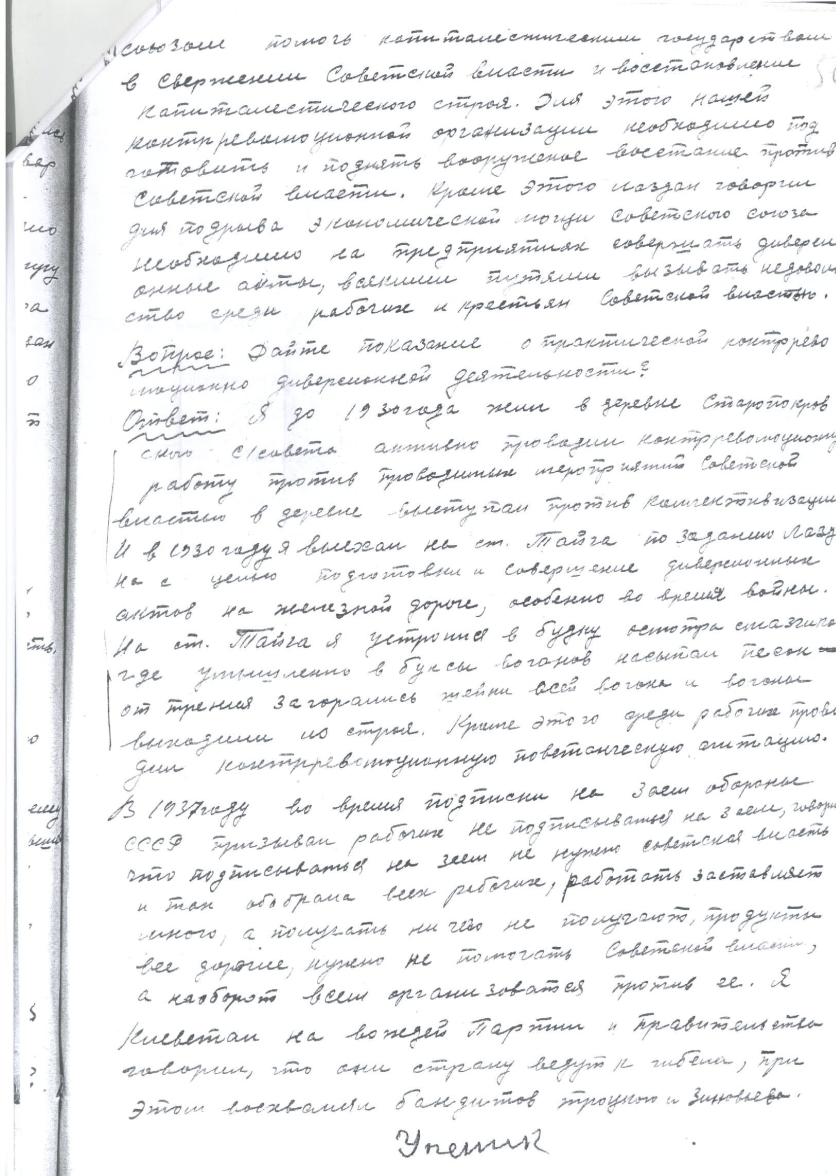 союзом помочь капиталестическим государствам
в свержении Советской власти и восстановление
капиталестического строя. Для этого нашей
контрреволюционной организации необходимо под
готовить и поднять вооруженое восстание против
советской власти. Кроме этого Лаздан говорил
для подрыва экономической мощи Советского союза
необходимо на предприятиях совершать диверси
онные акты, всякими путями вызывать недоволь
ство среди рабочих и крестьян Советской властью.
Вопрос: Дайте показание о практической контррево
люционно диверсионной деятельности?
Ответ: Я до 1930 года жил в деревне Старопокров
ского с/совета активно проводил контрреволюционну
работу против проводимых мероприятий Советской
властью в деревне выступал против коллективизации
И в 1930 году я выехал на ст. Тайга по заданию Лазд
на с целью подготовки и совершение диверсионных
актов на железной дороге, особенно во время войны.
На ст. Тайга я устроился в будку осмотра смазчико
где умышленно в буксы воганов насыпал песок
от трения загорались шейки всей вогона и вогоны
выходили из строя. Кроме этого среди рабочих прово
дил контрреволюционную повстанческую агитацию.
В 1937 году во время подписки на заем обороны
СССР призывал рабочих не подписываться на заем, говори
что подписываться на заем не нужно советская власть
и так обобрала всех рабочих, работать заставляет
много, а получать ничего не получают, продукты
все дорогие, нужно не помогать Советской власти,
а наоборот всем организоватся против ее. Я
Клеветал на вождей Партии и Правительства
говорил, что они страну ведут к гибели, при
этом восхвалял бандитов троцкого и Зиновьева.